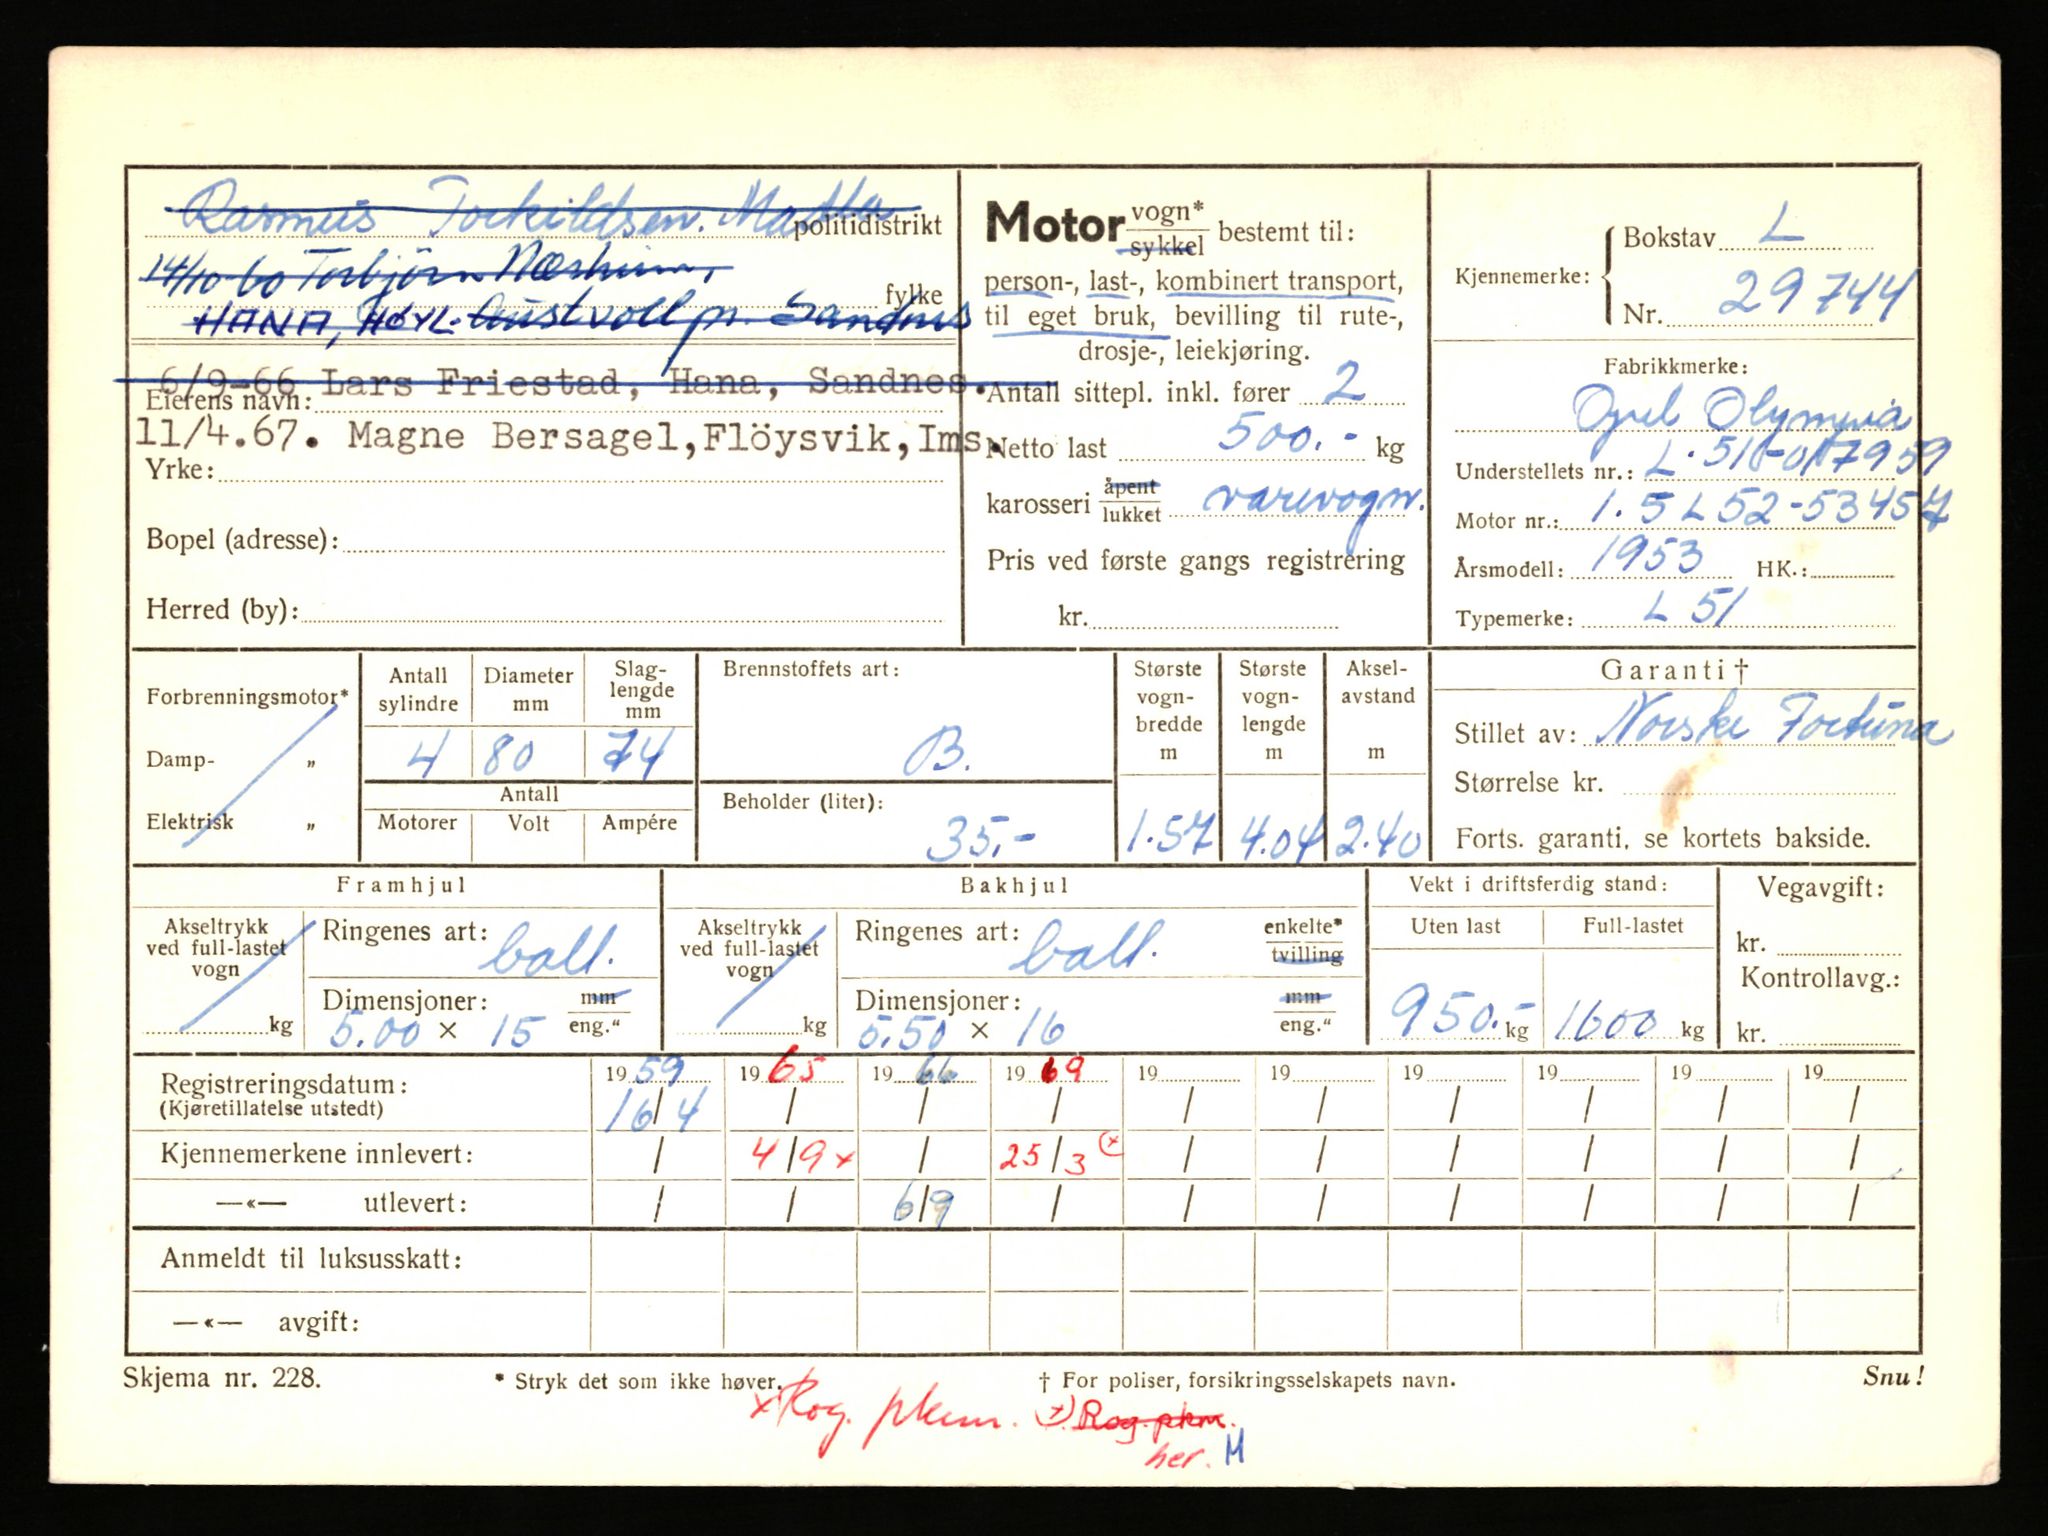 Rasmus Torkildsen. politidistrikt
14/10-60 Torbjörn Næsheim,
fylke
HANA, HØYL. Austvoll pr. Sandnes
6/9-66 Lars Friestad, Hana, Sandnes.
Eierens navn:
11/4.67. Magne Bersagel, Flöysvik, Ims.
Yrke:
Bopel (adresse):
Herred (by):
Motor vogn* sykkel bestemt til:
person-, last-, kombinert transport,
til eget bruk, bevilling til rute-,
drosje-, leiekjøring.
Antall sittepl. inkl. fører 2
Netto last 500.- kg
karosseri åpent lukket varevogn.
Pris ved første gangs registrering
kr.
Kjennemerke: Bokstav L
Nr. 29744
Fabrikkmerke:
Opel Olympia
Understellets nr.: L.51-0117959
Motor nr.: 1.5 L 52-53457
Årsmodell: 1953 HK.:
Typemerke: L 51
Forbrenningsmotor*
Damp- „
Elektrisk „
Antall sylindre Diameter mm Slag-lengde mm
4 80 74
Antall
Motorer Volt Ampére
Brennstoffets art:
B.
Beholder (liter):
35.-
Største vogn-bredde m Største vogn-lengde m Aksel-avstand m
1.57 4.04 2.40
Garanti †
Stillet av: Norske Fortuna
Størrelse kr.
Forts. garanti, se kortets bakside.
Framhjul
Akseltrykk ved full-lastet vogn
kg
Ringenes art: ball.
Dimensjoner: mm
5.00 × 15 eng."
Bakhjul
Akseltrykk ved full-lastet vogn
kg
Ringenes art: ball. enkelte* tvilling
Dimensjoner: mm
5.50 × 16 eng."
Vekt i driftsferdig stand:
Uten last Full-lastet
950.- kg 1600 kg
Vegavgift:
kr.
Kontrollavg.:
kr.
Registreringsdatum: 1959 1965 1966 1969 19 19 19 19 19 19
(Kjøretillatelse utstedt) 16/4 / / / / / / / / /
Kjennemerkene innlevert: / 4/9 x / 25/3 (x) / / / / / /
—«— utlevert: / / 6/9 / / / / / / /
Anmeldt til luksusskatt:
—«— avgift:
Skjema nr. 228. * Stryk det som ikke høver. † For poliser, forsikringsselskapets navn. Snu!
x Rog. pkm. (x) Rog. pkm.
her. M